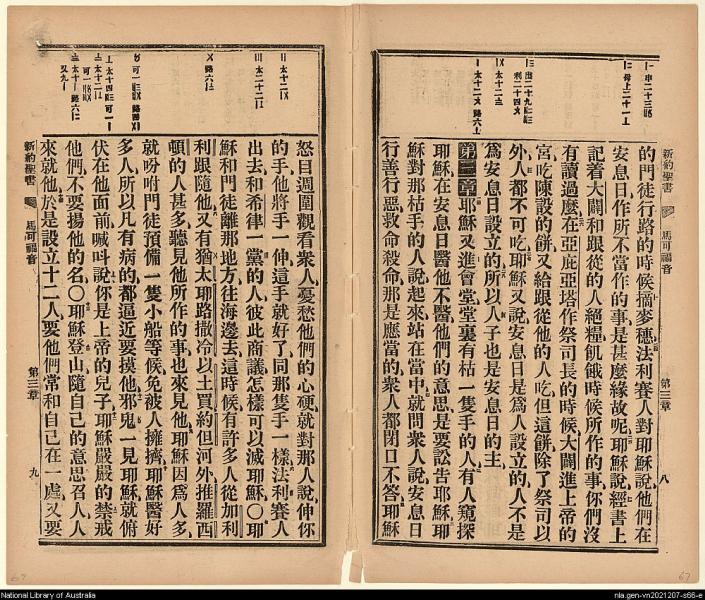 新約聖書
馬可福音
第三章
八
的門徒行路的時候摘麥穗法利賽人對耶穌說他們在
安息日作所不當作的事是甚麼緣故呢耶穌說經書上
記着大闢和跟從的人絕糧飢餓時候所作的事你們沒
有讀過麼在亞庇亞塔作祭司長的時候大闢進上帝的
宮吃陳設的餅又給跟從他的人吃但這餅除了祭司以
外人都不可吃耶穌又說安息日是爲人設立的人不是
爲安息日設立的所以人子也是安息日的主
第三章耶穌又進會堂堂裏有枯一隻手的人有人窺探
耶穌在安息日醫他不醫他們的意思是要訟告耶穌耶
穌對那枯手的人說起來站在當中就問衆人說安息日
行善行惡救命殺命那是應當的衆人都閉口不答耶穌
怒目週圍觀看衆人憂愁他們的心硬就對那人說伸你
的手他將手一伸這手就好了同那隻手一樣法利賽人
出去和希律一黨的人彼此商議怎樣可以滅耶穌〇耶
穌和門徒離那地方往海邊去這時候有許多人從加利
利跟隨他又有猶太耶路撒冷以土買約但河外推羅西
頓的人甚多聽見他所作的事也來見他耶穌因爲人多
就吩咐門徒預備一隻小船等候免被人擁擠耶穌醫好
多人所以凡有病的都逼近要摸他邪鬼一見耶穌就俯
伏在他面前喊叫說你是上帝的兒子耶穌嚴嚴的禁戒
他們不要揚他的名〇耶穌登山隨自己的意思召人人
來就他於是設立十二人要他們常和自己在一處又要
新約聖書
馬可福音
第三章
九
National Library of Australia
nla.gen-vn2021207-s66-e